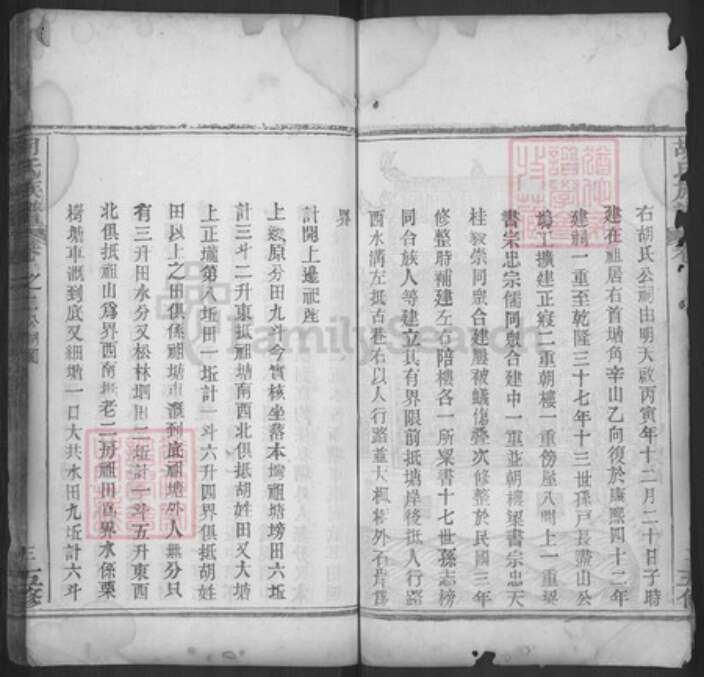 右胡氏公祠由明天啟丙寅年十二月二十日子時
建在祖居右首塘角辛山乙向復於康熙四十二年
建祠一重至乾隆三十七年十三世孫戶長 山公
鳩工擴建正寢二重朝樓一重傍屋八間上一重梁
書宗忠宗儒同眾合建中一重並朝樓梁書宗忠天
桂 崇同眾合建嚴被蟻傷疊次修整於民國三年
修整時補建左右陪樓各一所梁書十七世孫志榜
同合族人等建立其有界限前抵塘岸後抵人行路
西水溝左抵古巷右以人行路並大楓樹外石岸為
界
計開上邊祀產
上 原分田九斗今實核坐落本塆祖塘塝田六坵
計三斗二升東抵祖塘南西北俱抵胡姓田又大塘
上正壠第八坵田一坵計一斗六升四界俱抵胡姓
田以上之田俱係祖塘車灌到底祖塘外人無分只
有三升田水分又松林 田二坵計一斗五升東西
北俱抵祖山為界西南抵老二房祖田為界水係栗
樹塘車灌到底又細塘一口大共水田九坵計六斗
胡氏族譜
卷 之二 公祠圖
三
五修
五修
FamilySearch